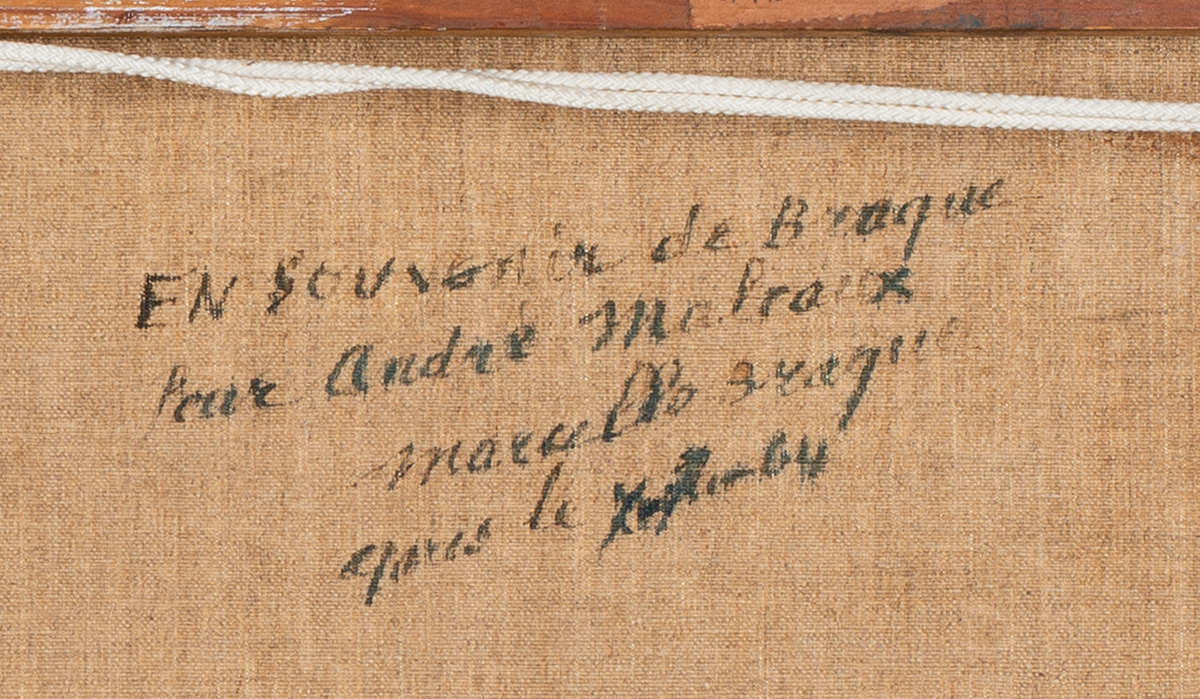 EN Souvenir de Braque
Pour André Malraux
Marcelle Braque
le 64